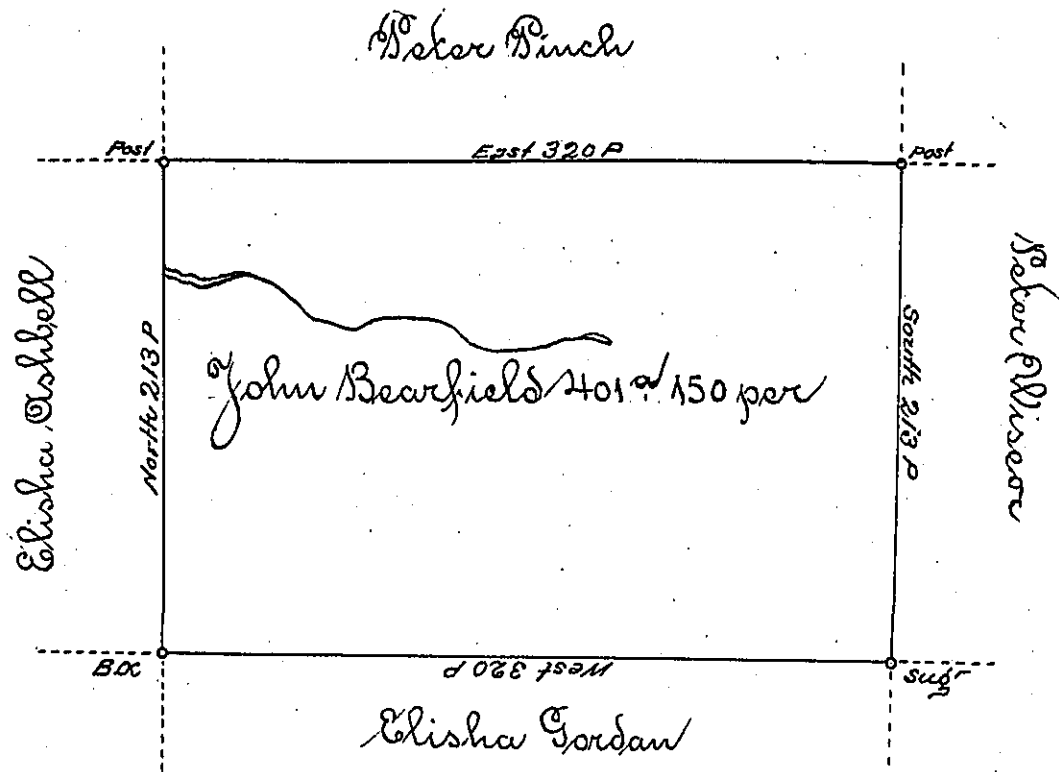 Peter Pinch
Post
East 320 P
Post
Elisha Ashbell
North 213 P
John Bearfield 401 a 150 per
South 213 P
West 320 P
Sugr
Elisha Gordan